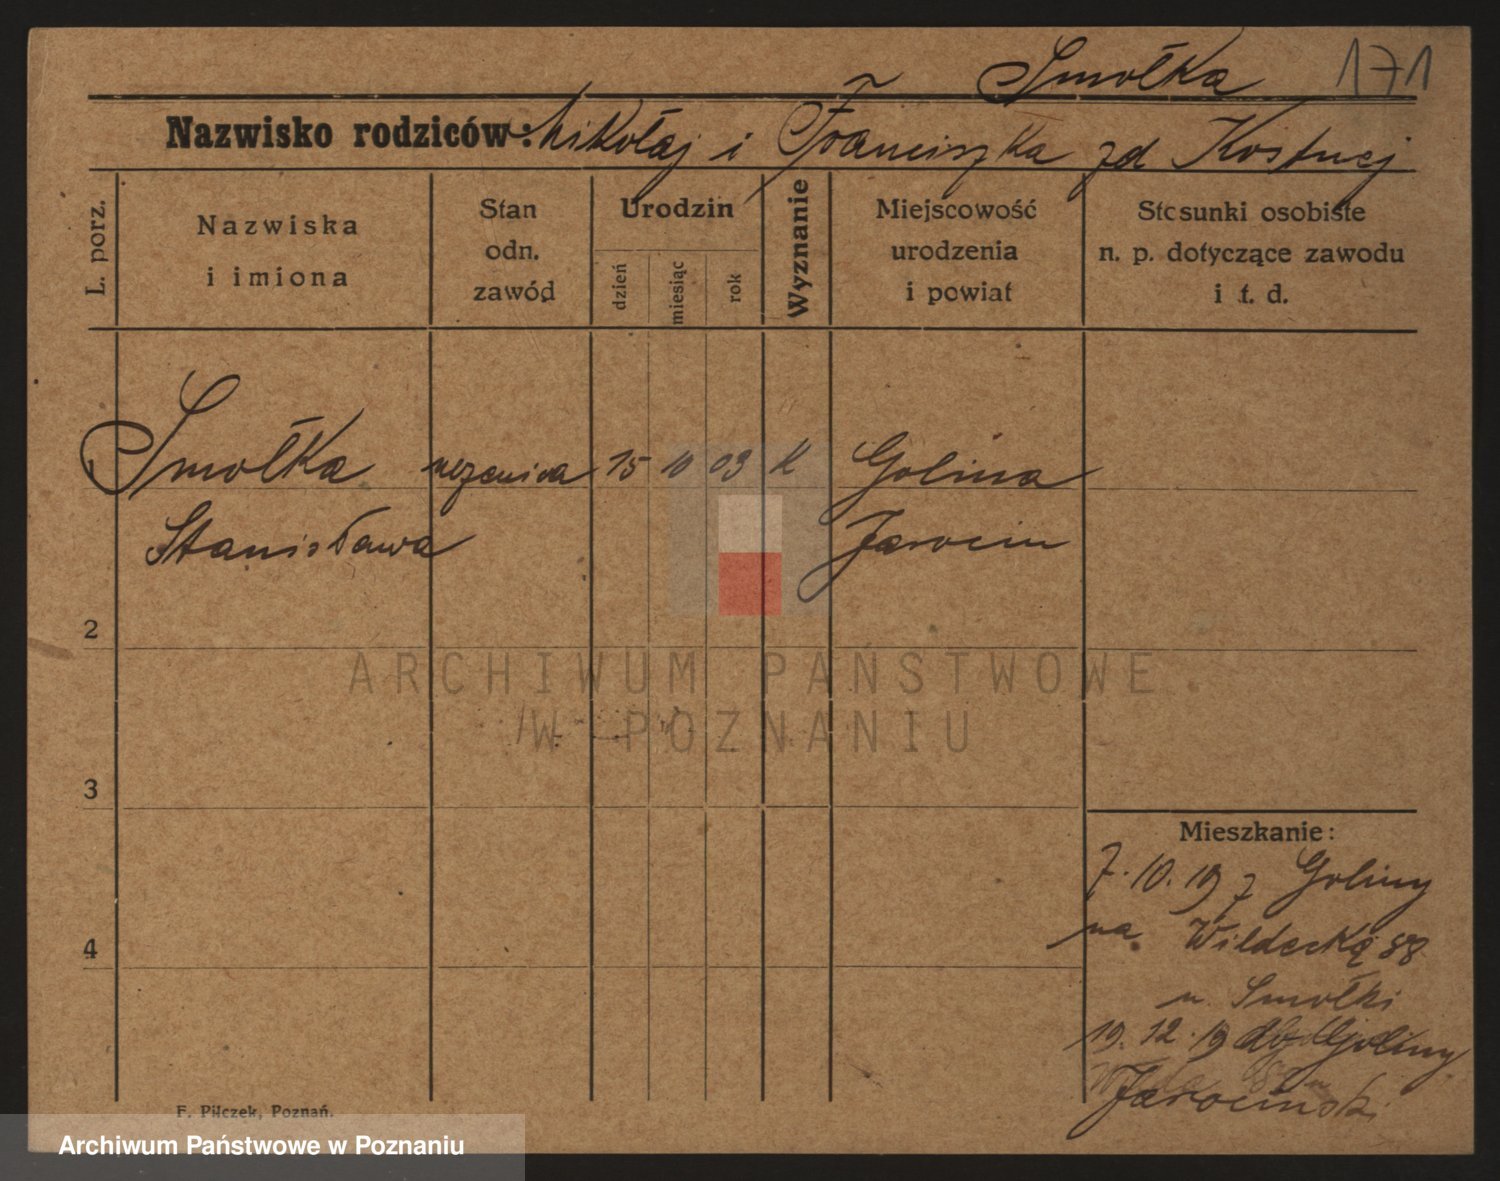 Smołka 171
Nazwisko rodziców: Mikołaj i Franciszka zd
L. porz.
Nazwiska
i imiona
Stan
odn.
zawód
Urodzin
dzień
miesiąc
rok
Wyznanie
Miejscowość
urodzenia
i powiat
Stosunki osobiste
n. p. dotyczące zawodu
i t. d.
Smołka uczenica 15 10 03 K Golina
Stanisława Jarocin
2
ARCHIWUM PAŃSTWOWE
W POZNANIU
3
Mieszkanie:
7.10.19 z Goliny
4
na Wildecką 88
u Smołki
19.12.19 do Goliny
Jarocinski
F. Pilczek, Poznań.
Archiwum Państwowe w Poznaniu